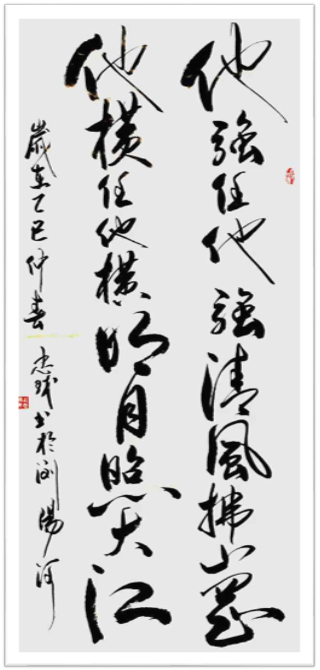 他強任他強清風拂山崗
他橫任他橫明月照大江
歲在乙巳仲春 忠球書於瀏陽河